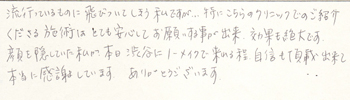 流行っているものに飛びついてしまう私ですが、特にこちらのクリニックでのご紹介
くださる施術はとても安心してお願いする事が出来、効果も絶大です。
顔を隠していた私が本日渋谷にノーメイクで来れる程、自信も頂戴出来て
本当に感謝しています。ありがとうございます。